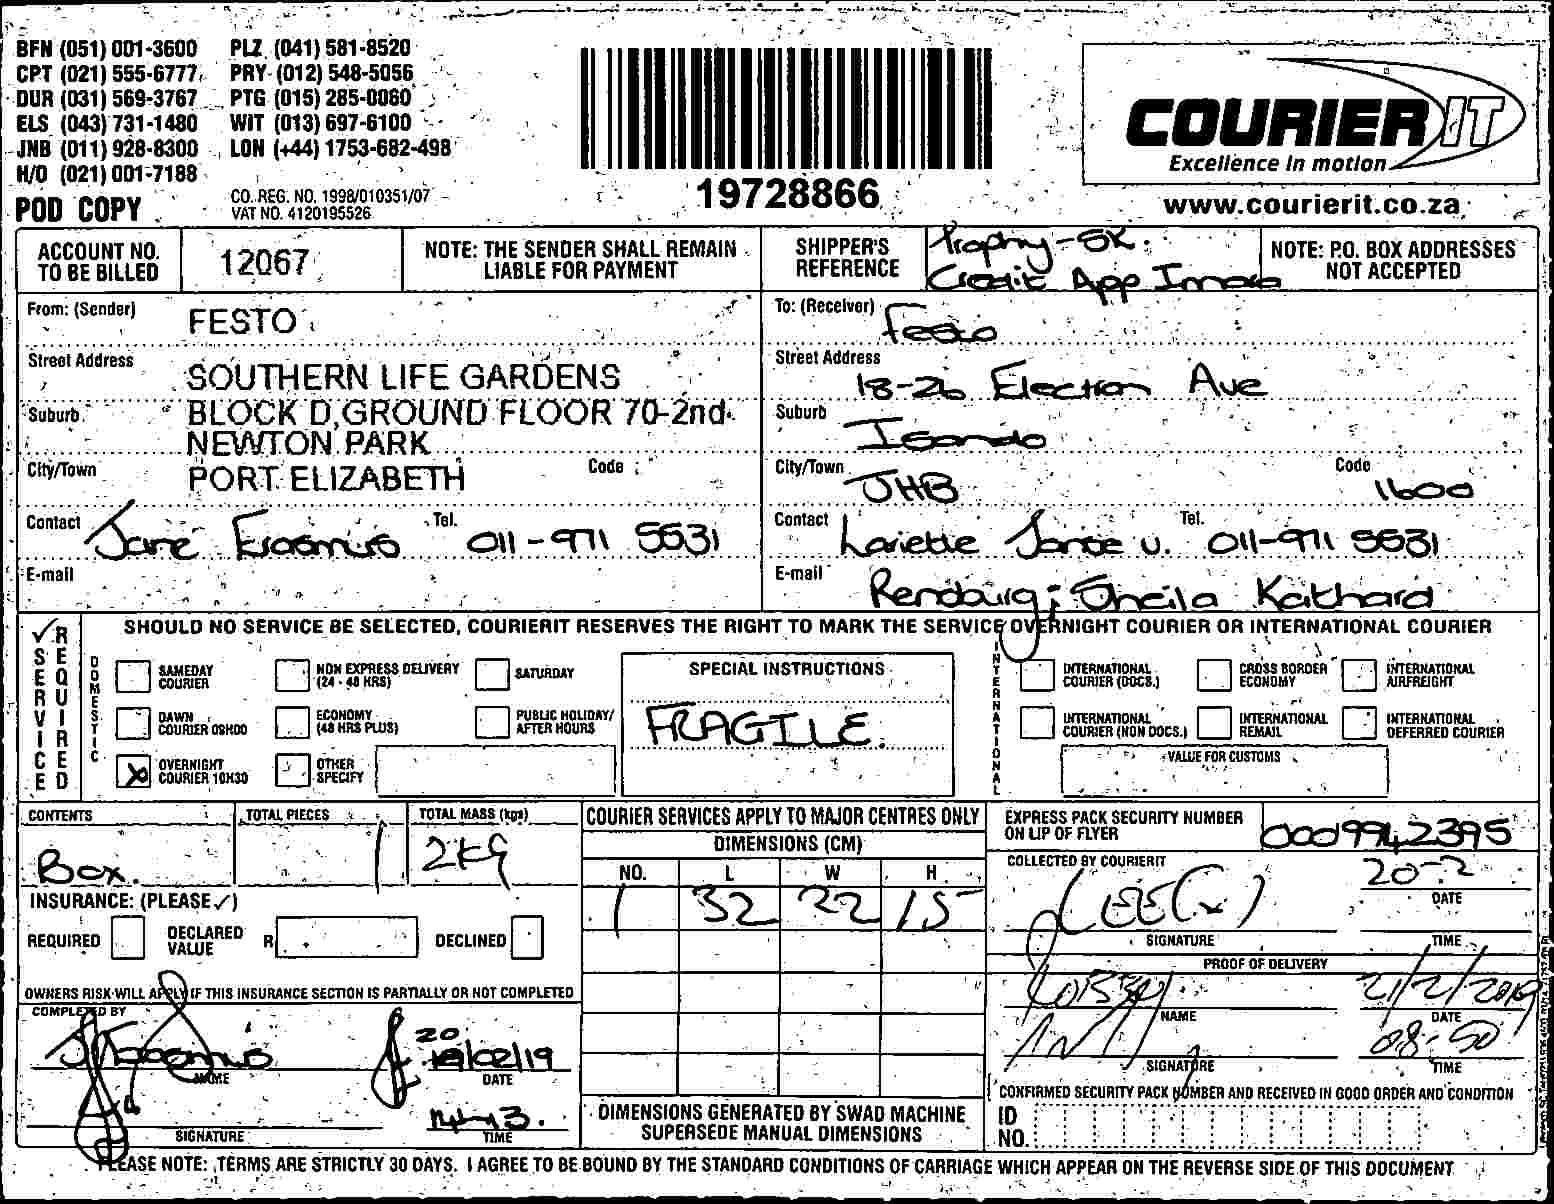 BFN (051) 001-3600 PLZ (041) 581-8520
CPT (021) 555-6777 PRY (012) 548-5056
DUR (031) 569-3767 PTG (015) 285-0060
ELS (043) 731-1480 WIT (013) 697-6100
JNB (011) 928-8300 LON (+44) 1753-682-498
H/O (021) 001-7188
POD COPY
CO. REG. NO. 1998/010351/07
VAT NO. 4120195526
19728866
COURIER IT
Excellence in motion
www.courierit.co.za
ACCOUNT NO. TO BE BILLED
12067
NOTE: THE SENDER SHALL REMAIN LIABLE FOR PAYMENT
SHIPPER'S REFERENCE
Trophy - SK
Credit App
NOTE: P.O. BOX ADDRESSES NOT ACCEPTED
From: (Sender) FESTO
Street Address SOUTHERN LIFE GARDENS
Suburb BLOCK D,GROUND FLOOR 70-2nd
NEWTON PARK
City/Town PORT ELIZABETH Code
Contact Jane Erasmus Tel. 011-971 5531
E-mail
To: (Receiver) Festo
Street Address 18-26 Election Ave
Suburb Isando
City/Town JHB Code 1600
Contact Lariette Janse v. Tel. 011-971 5531
E-mail Rensburg; Sheila Kathard
SERVICE REQUIRED
SHOULD NO SERVICE BE SELECTED, COURIERIT RESERVES THE RIGHT TO MARK THE SERVICE OVERNIGHT COURIER OR INTERNATIONAL COURIER
DOMESTIC
SAMEDAY COURIER
NON EXPRESS DELIVERY (24 - 48 HRS)
SATURDAY
DAWN COURIER 09H00
ECONOMY (48 HRS PLUS)
PUBLIC HOLIDAY/ AFTER HOURS
OVERNIGHT COURIER 10H30
OTHER SPECIFY
SPECIAL INSTRUCTIONS
FRAGILE.
INTERNATIONAL
INTERNATIONAL COURIER (DOCS.)
CROSS BORDER ECONOMY
INTERNATIONAL AIRFREIGHT
INTERNATIONAL COURIER (NON DOCS.)
INTERNATIONAL REMAIL
INTERNATIONAL DEFERRED COURIER
VALUE FOR CUSTOMS
CONTENTS
Box.
TOTAL PIECES
1
TOTAL MASS (kgs)
2kg
INSURANCE: (PLEASE ✓)
REQUIRED
DECLARED VALUE R
DECLINED
OWNERS RISK WILL APPLY IF THIS INSURANCE SECTION IS PARTIALLY OR NOT COMPLETED
COMPLETED BY
J Erasmus
NAME
20
19/02/19
DATE
SIGNATURE
14h13.
TIME
COURIER SERVICES APPLY TO MAJOR CENTRES ONLY
DIMENSIONS (CM)
NO. L W H
1 32 22 15
DIMENSIONS GENERATED BY SWAD MACHINE
SUPERSEDE MANUAL DIMENSIONS
EXPRESS PACK SECURITY NUMBER ON LIP OF FLYER
0009942395
COLLECTED BY COURIERIT
20-2
DATE
SIGNATURE
TIME
PROOF OF DELIVERY
21/2/2019
NAME
DATE
08:50
SIGNATURE
TIME
CONFIRMED SECURITY PACK NUMBER AND RECEIVED IN GOOD ORDER AND CONDITION
ID NO.
PLEASE NOTE: TERMS ARE STRICTLY 30 DAYS. I AGREE TO BE BOUND BY THE STANDARD CONDITIONS OF CARRIAGE WHICH APPEAR ON THE REVERSE SIDE OF THIS DOCUMENT